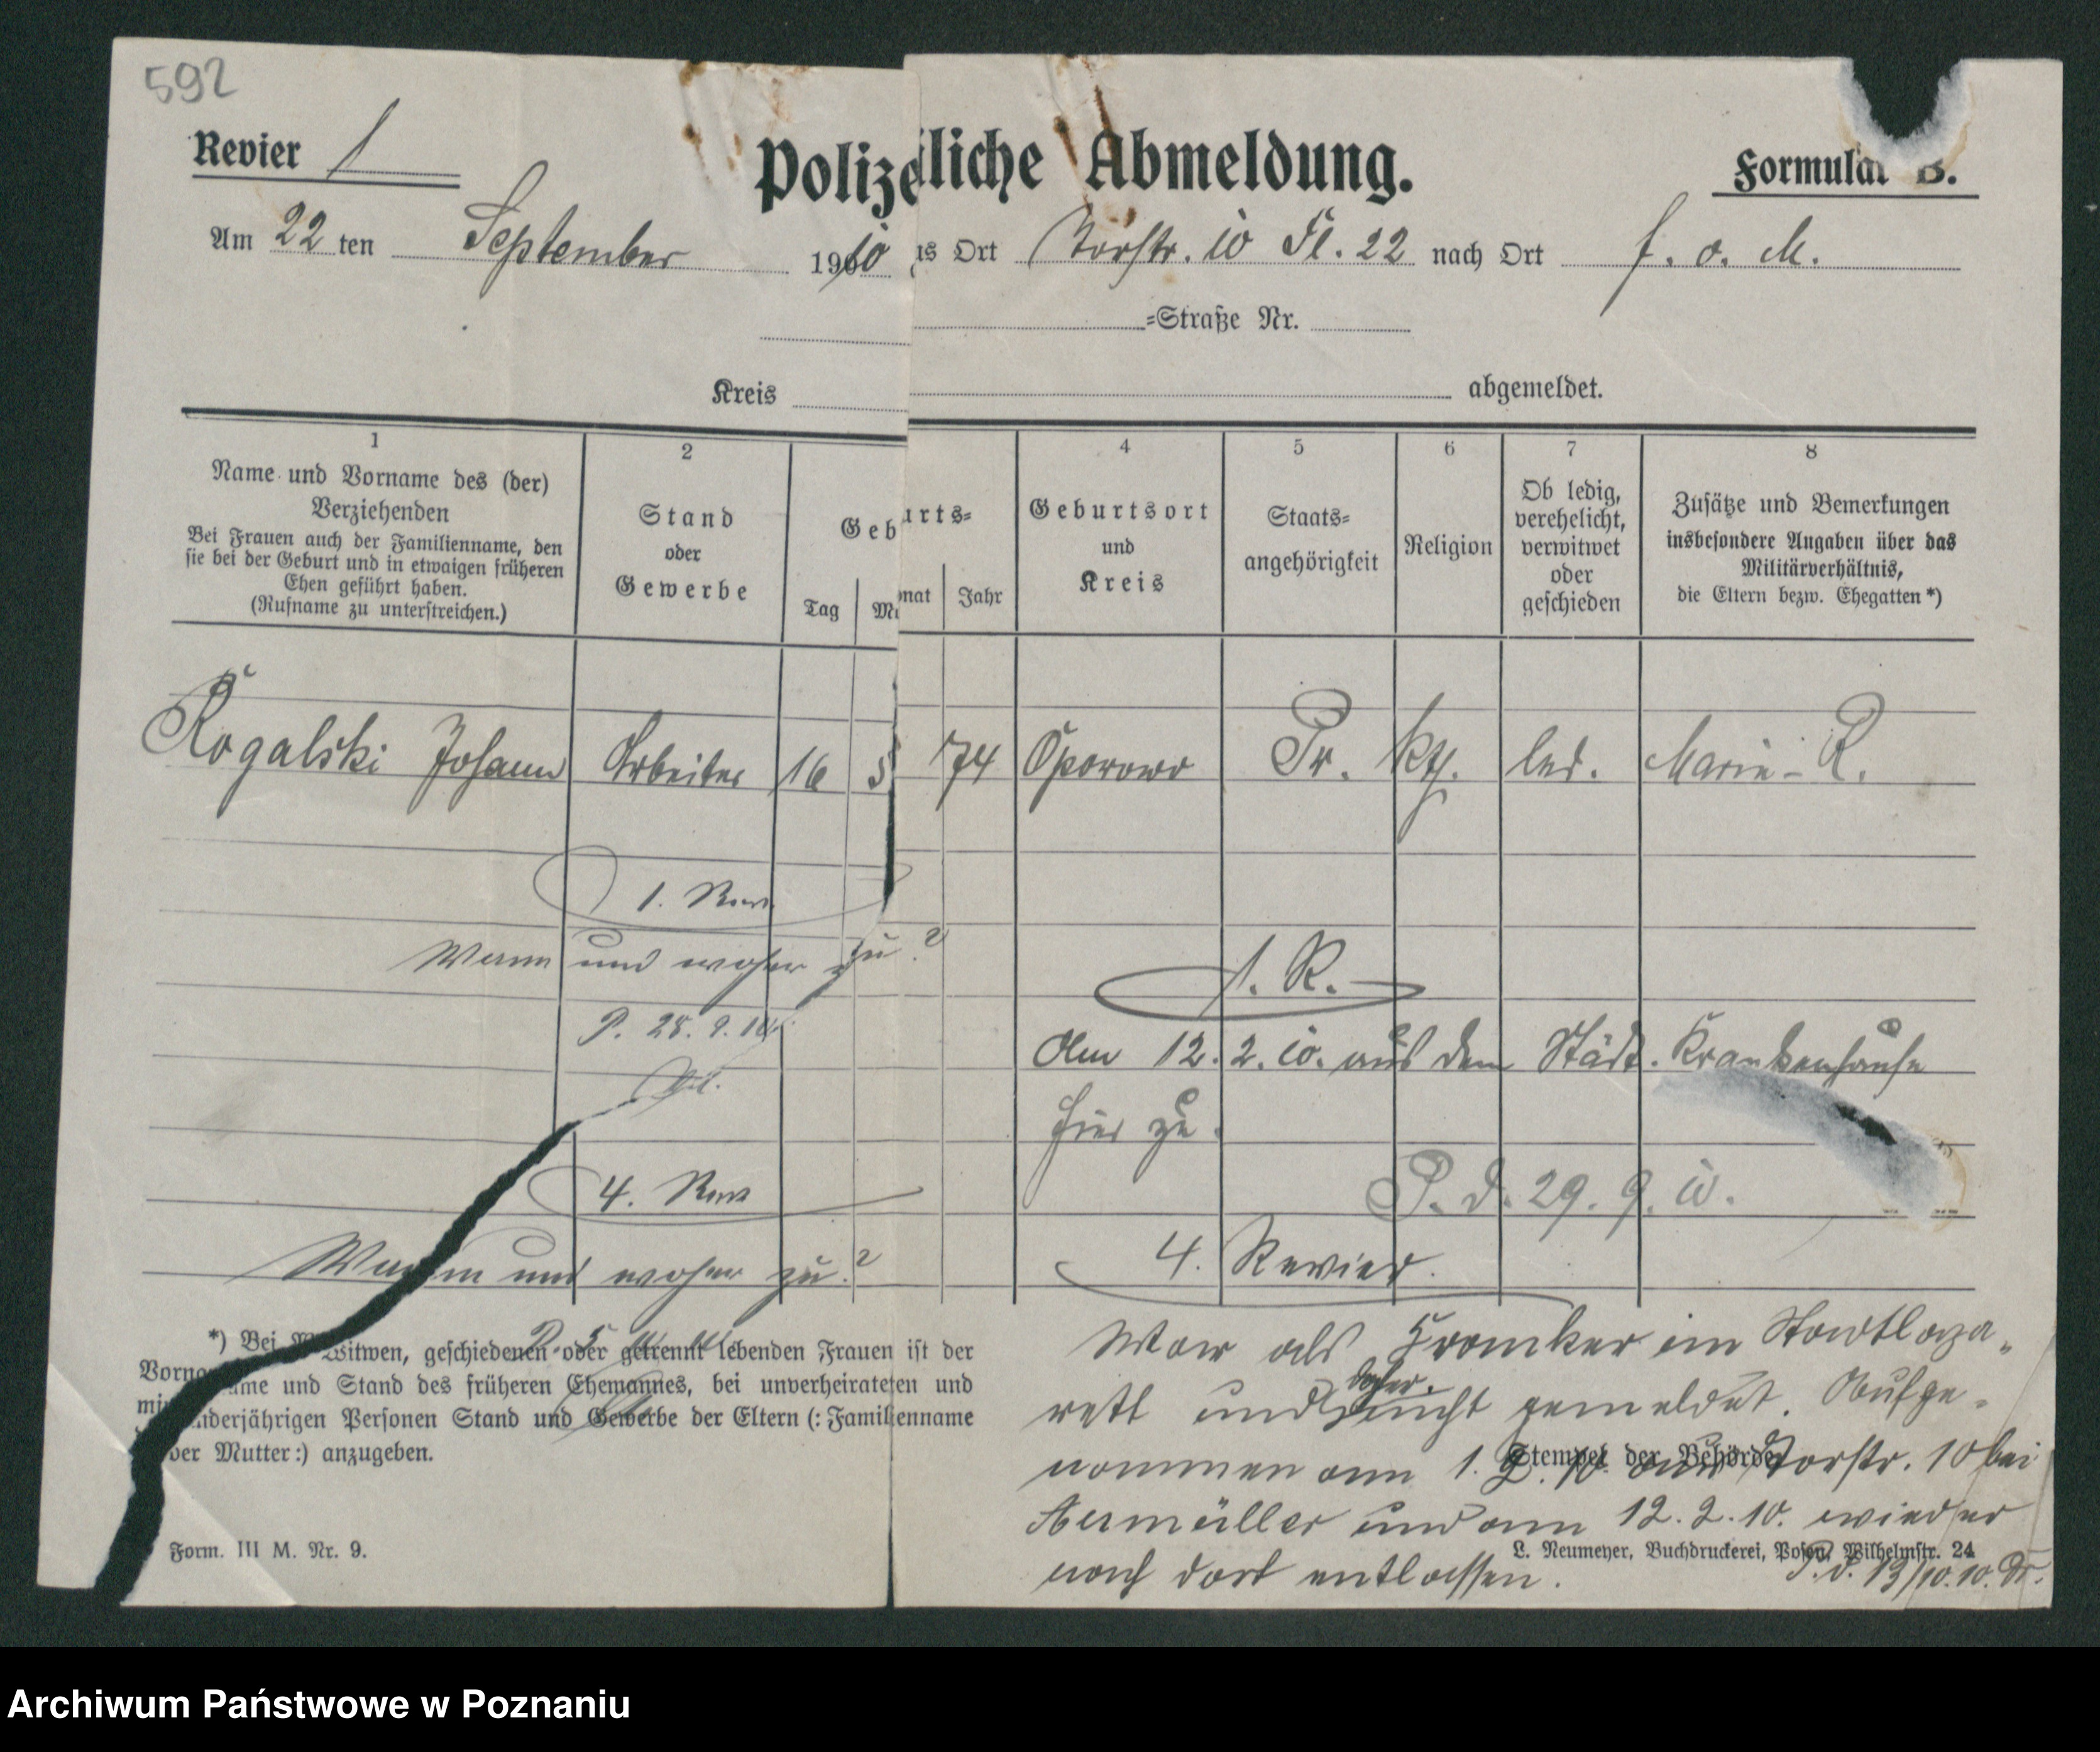 592
Revier 1
Polizeiliche Abmeldung.
Formular B.
Am 22 ten September 1910 aus Ort Torstr. 10 Fl. 22 nach Ort f. o. M.
=Straße Nr.
Kreis abgemeldet.
1 2 4 5 6 7 8
Name und Vorname des (der)
Verziehenden
Bei Frauen auch der Familienname, den
sie bei der Geburt und in etwaigen früheren
Ehen geführt haben.
(Rufname zu unterstreichen.)
Stand
oder
Gewerbe
Geburts=
Tag Monat Jahr
Geburtsort
und
Kreis
Staats=
angehörigkeit
Religion
Ob ledig,
verehelicht,
verwitwet
oder
geschieden
Zusätze und Bemerkungen
insbesondere Angaben über das
Militärverhältnis,
die Eltern bezw. Ehegatten *)
Rogalski Johann Arbeiter 16 5 74 Oporowo Pr. kth. led. Marie R.
1. Rev.
Wann und woher zu?
P. 28. 9. 10.
4. Rev.
Wann und woher zu?
1. R.
Am 12. 2. 10. aus dem Städt. Krankenhause
hier zu.
P. d. 29. 9. 10.
4. Revier.
War als Kranker im Stadtlaza-
rett und daher nicht gemeldet. Aufge-
nommen am 1. 2. 10. aus Torstr. 10 bei
und am 12. 2. 10. wieder
nach dort entlassen.
P. d. 13/10. 10.
*) Bei Witwen, geschiedenen oder getrennt lebenden Frauen ist der
Vorname und Stand des früheren Ehemannes, bei unverheirateten und
minderjährigen Personen Stand und Gewerbe der Eltern (: Familienname
der Mutter :) anzugeben.
Stempel der Behörde
Form. III M. Nr. 9.
L. Neumeyer, Buchdruckerei, Posen, Wilhelmstr. 24
Archiwum Państwowe w Poznaniu